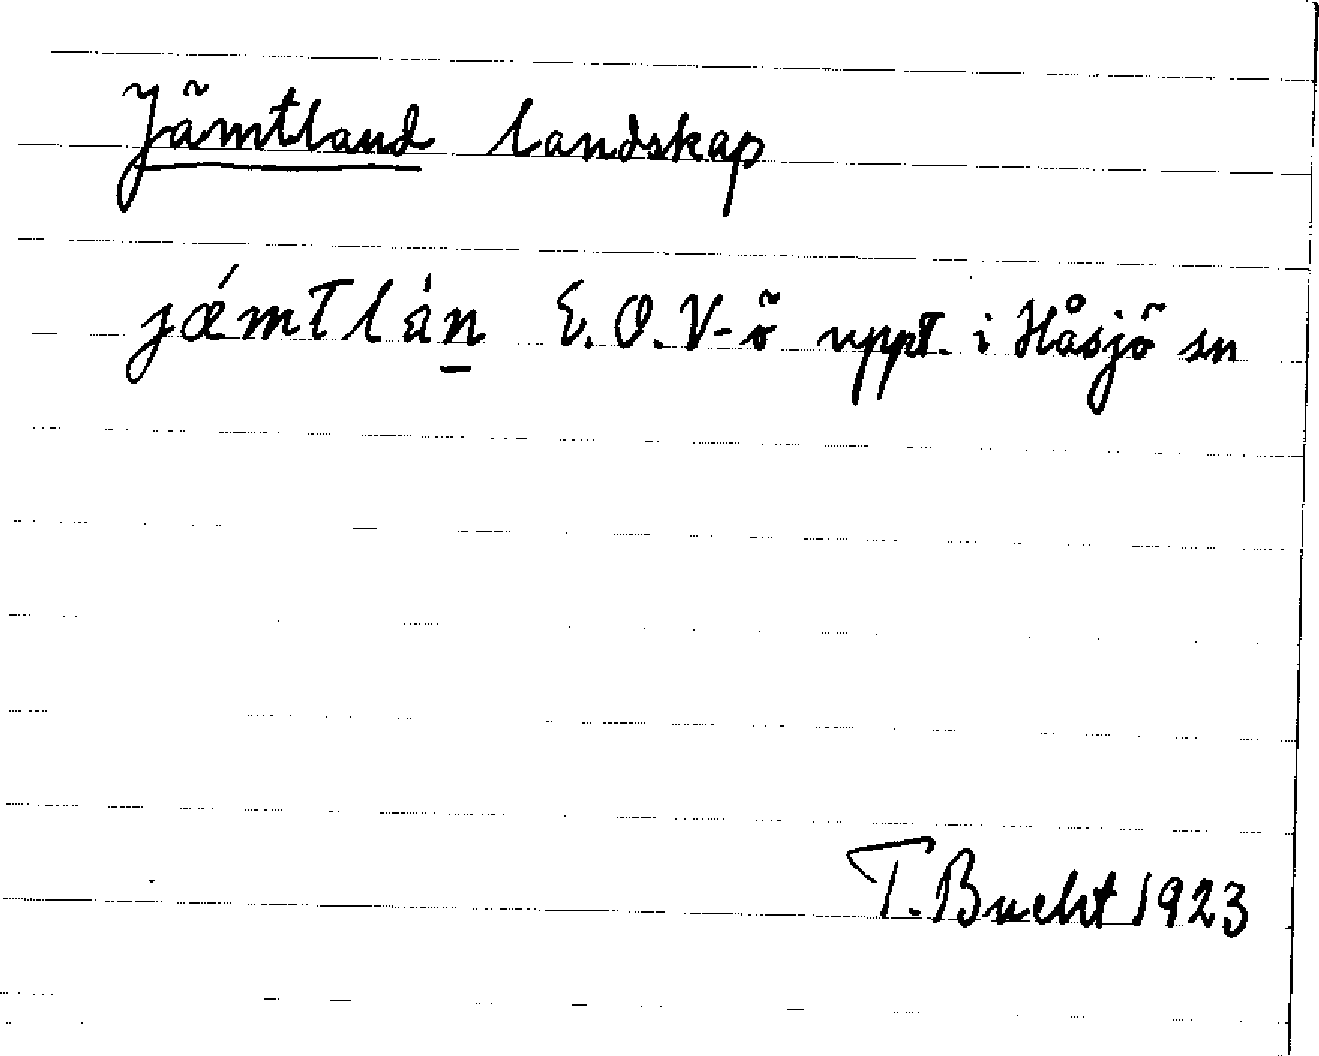 Jämtland landskap
jǽmtlán E. O. V-ö uppt. i Håsjö sn
T. Bucht 1923